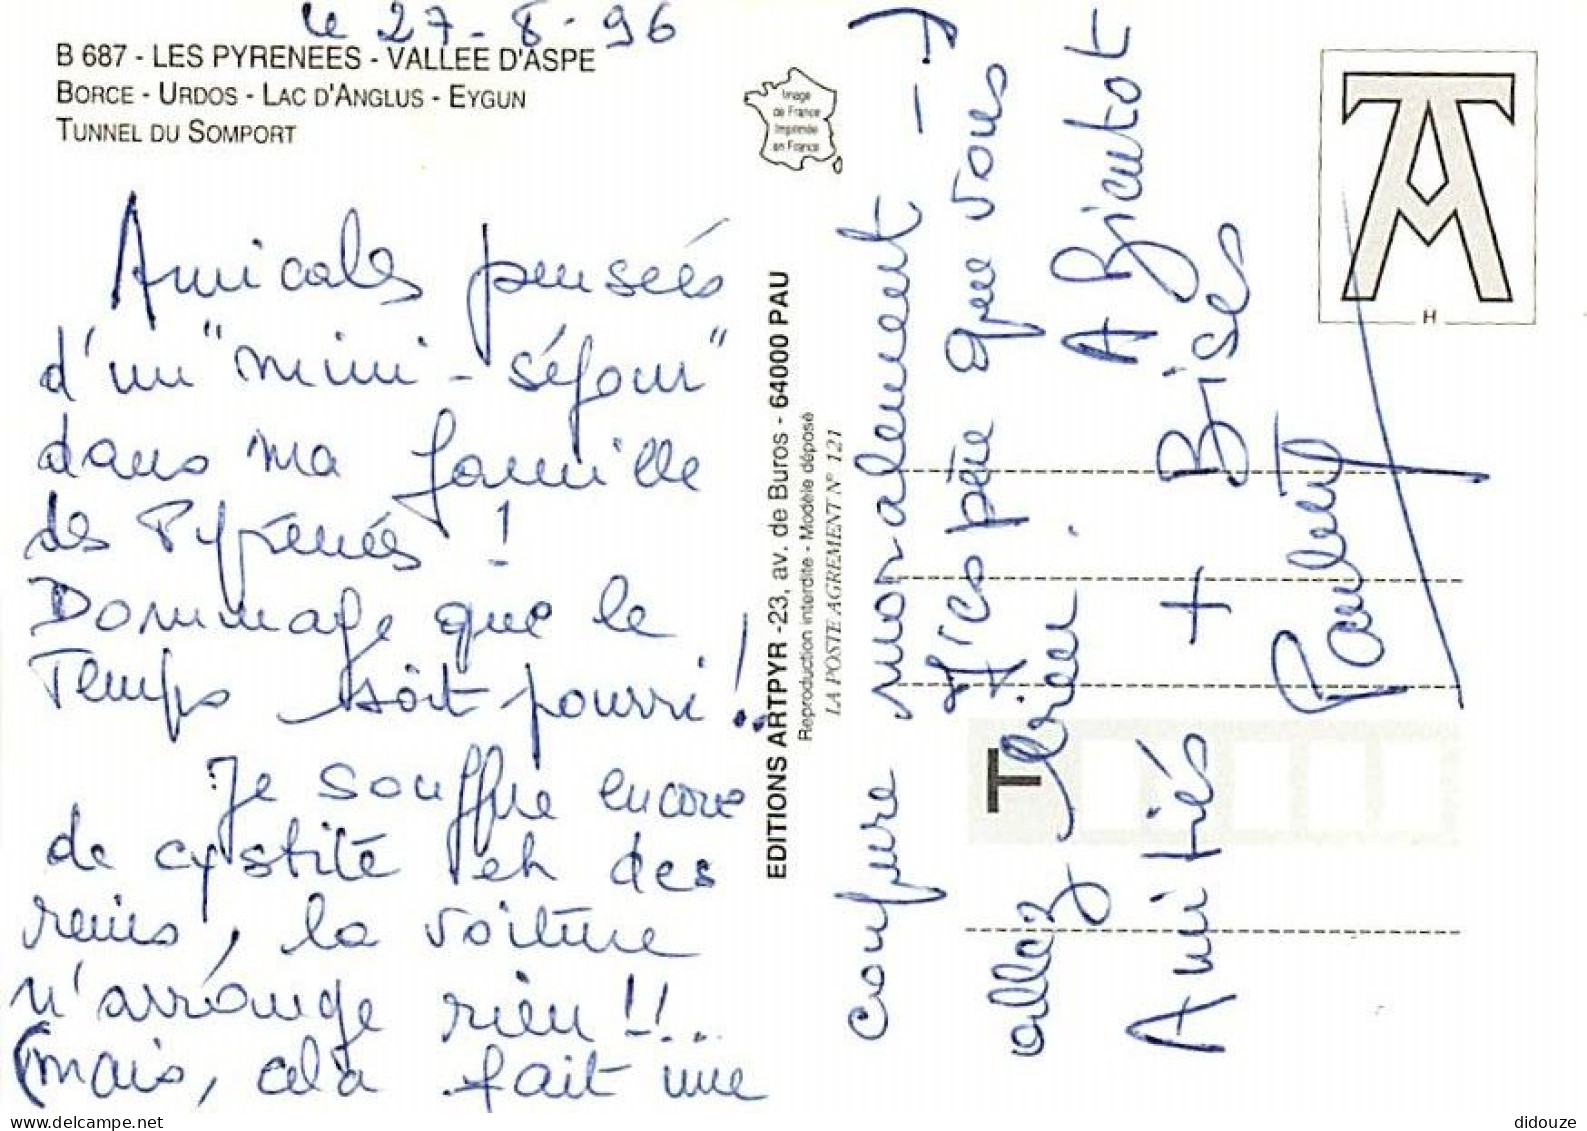 le 27-8-96
B 687 - LES PYRENEES - VALLEE D'ASPE
BORCE - URDOS - LAC D'ANGLUS - EYGUN
TUNNEL DU SOMPORT
Amicales pensées
d'un "mini-séjour"
dans ma famille
des Pyrénées !
Dommage que le
Temps soit pourri !!
Je souffre encore
de cystite et des
reins, la voiture
n'arrange rien !!...
(mais, cela fait une
EDITIONS ARTPYR -23, av. de Buros - 64000 PAU
Reproduction interdite - Modèle déposé
LA POSTE AGREMENT N° 121
Image
de France
Imprimée
en France
coupure moralement -)
J'espère que vous
allez bien.
A Bientôt
Amitiés + Bises
Paulette
T
H
didouze